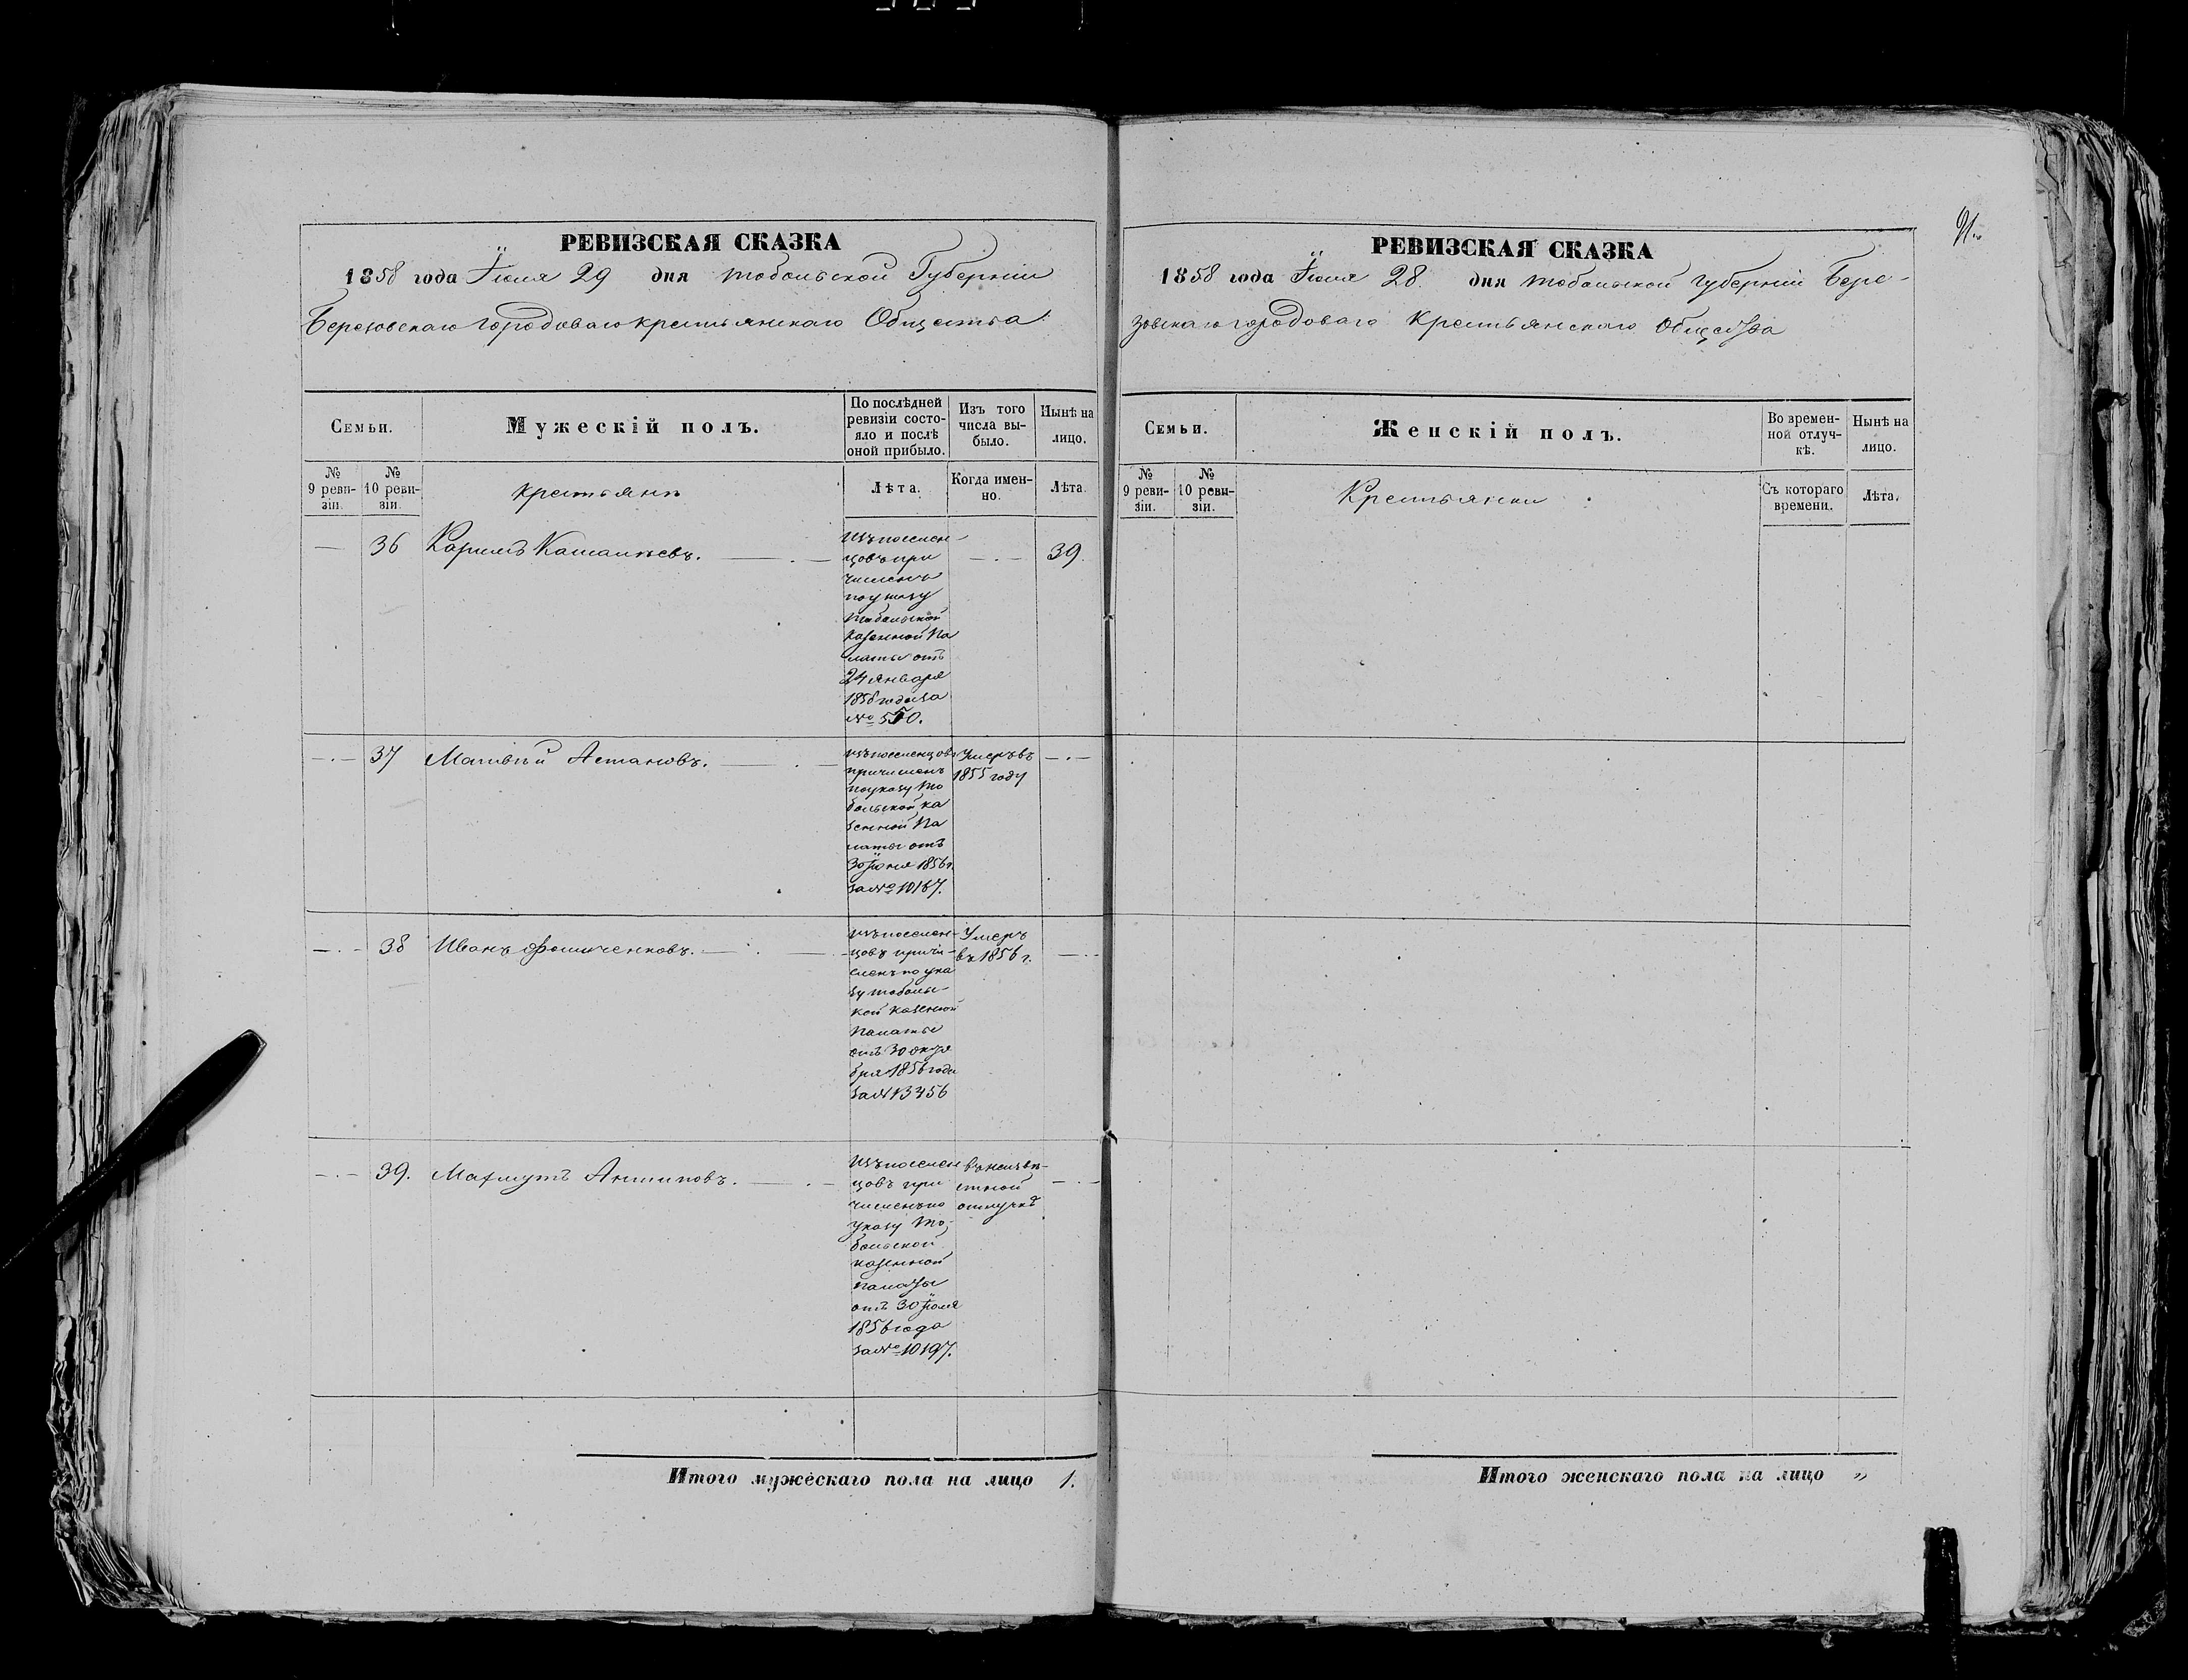 РЕВИЗСКАЯ СКАЗКА
1858 года Іюля 29 дня Тобольской Губерніи
Березовскаго городоваго крестьянскаго Общества
Семьи.
Мужескій полъ.
По послѣдней
ревизіи состо-
яло и послѣ
оной прибыло.
Изъ того
числа вы-
было.
Нынѣ на
лицо.
№
9 реви-
зіи.
№
10 реви-
зіи.
крестьянъ
Лѣта.
Когда имен-
но.
Лѣта.
— 36 Каримъ
изъ поселен-
цовъ при
численъ
по указу
Тобольской
казенной Па
латы отъ
24 Января
1858 года за
№ 550.
—.— 39.
—.— 37 Матвѣй Астановъ.
изъ поселенцовъ
причисленъ
по указу То
больской ка
зенной Па
латы отъ
1856 г.
за № 10187.
Умеръ въ
1855 году
—.—
—.— 38 Иванъ Фомиченковъ.
изъ поселен-
цовъ причи-
сленъ по ука
зу Тоболь-
кой казенной
Палаты
отъ 30 октя
бря 1856 года
за № 13456
Умеръ
въ 1856 г.
—.—
—.— 39. Махмутъ Антиповъ.
изъ поселен
цовъ при
численъ по
указу То-
больской
казенной
палаты
отъ 30 Іюля
1856 года
за № 10197.
въ неизвѣ-
стной
отлучкѣ
—.—
Итого мужескаго пола на лицо 1.
91.
РЕВИЗСКАЯ СКАЗКА
1858 года Іюля 28. дня Тобольской губерніи Бере-
зовскаго городоваго Крестьянскаго Общества
Семьи.
Женскій полъ.
Во времен-
ной отлуч-
кѣ.
Нынѣ на
лицо.
№
9 реви-
зіи.
№
10 реви-
зіи.
Крестьянки
Съ котораго
времени.
Лѣта.
Итого женскаго пола на лицо „